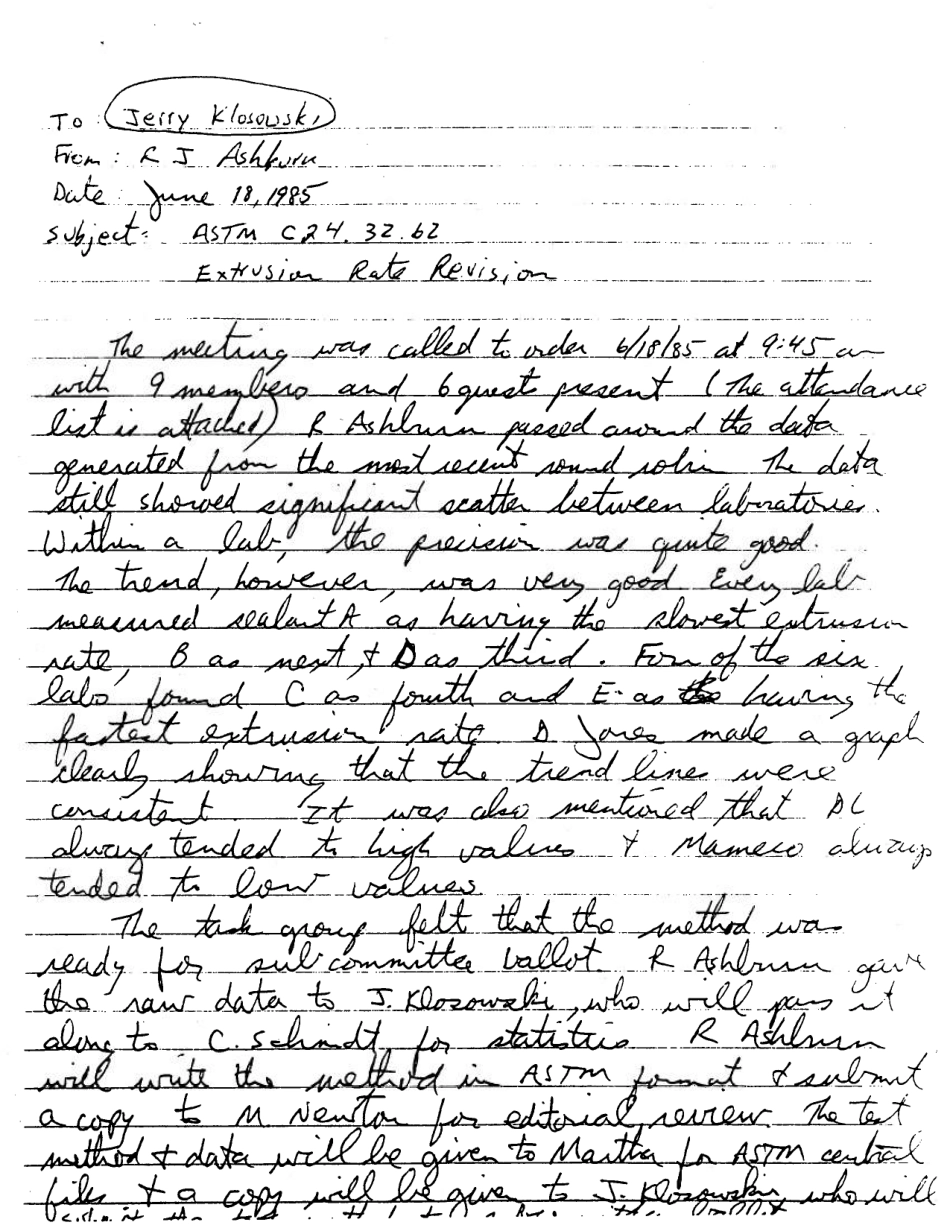 To: Jerry Klosowski
From: R J Ashburn
Date: June 18, 1985
Subject: ASTM C24.32.62
Extrusion Rate Revision
The meeting was called to order 6/18/85 at 9:45 am
with 9 members and 6 guest present (The attendance
list is attached) R Ashburn passed around the data
generated from the most recent round robin The data
still showed significant scatter between laboratories.
Within a lab, the precision was quite good.
The trend, however, was very good Every lab
measured sealant A as having the slowest extrusion
rate, B as next, + D as third. Four of the six
labs found C as fourth and E as having the
fastest extrusion rate. D Jones made a graph
clearly showing that the trend lines were
consistent. It was also mentioned that DC
always tended to high values + Mameco always
tended to low values
The task group felt that the method was
ready for subcommittee ballot. R Ashburn gave
the raw data to J. Klosowski, who will pass it
along to C. Schmidt for statistics R Ashburn
will write the method in ASTM format & submit
a copy to M Newton for editorial review. The test
method + data will be given to Martha for ASTM central
files + a copy will be given to J. Klosowski, who will